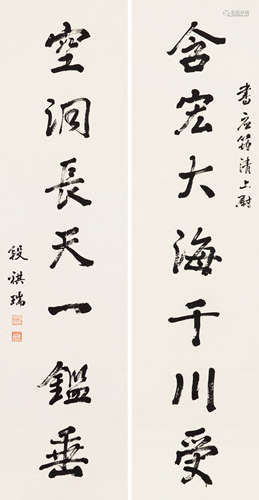 書應筠清上尉
含宏大海千川受
空洞長天一鑑垂
段祺瑞